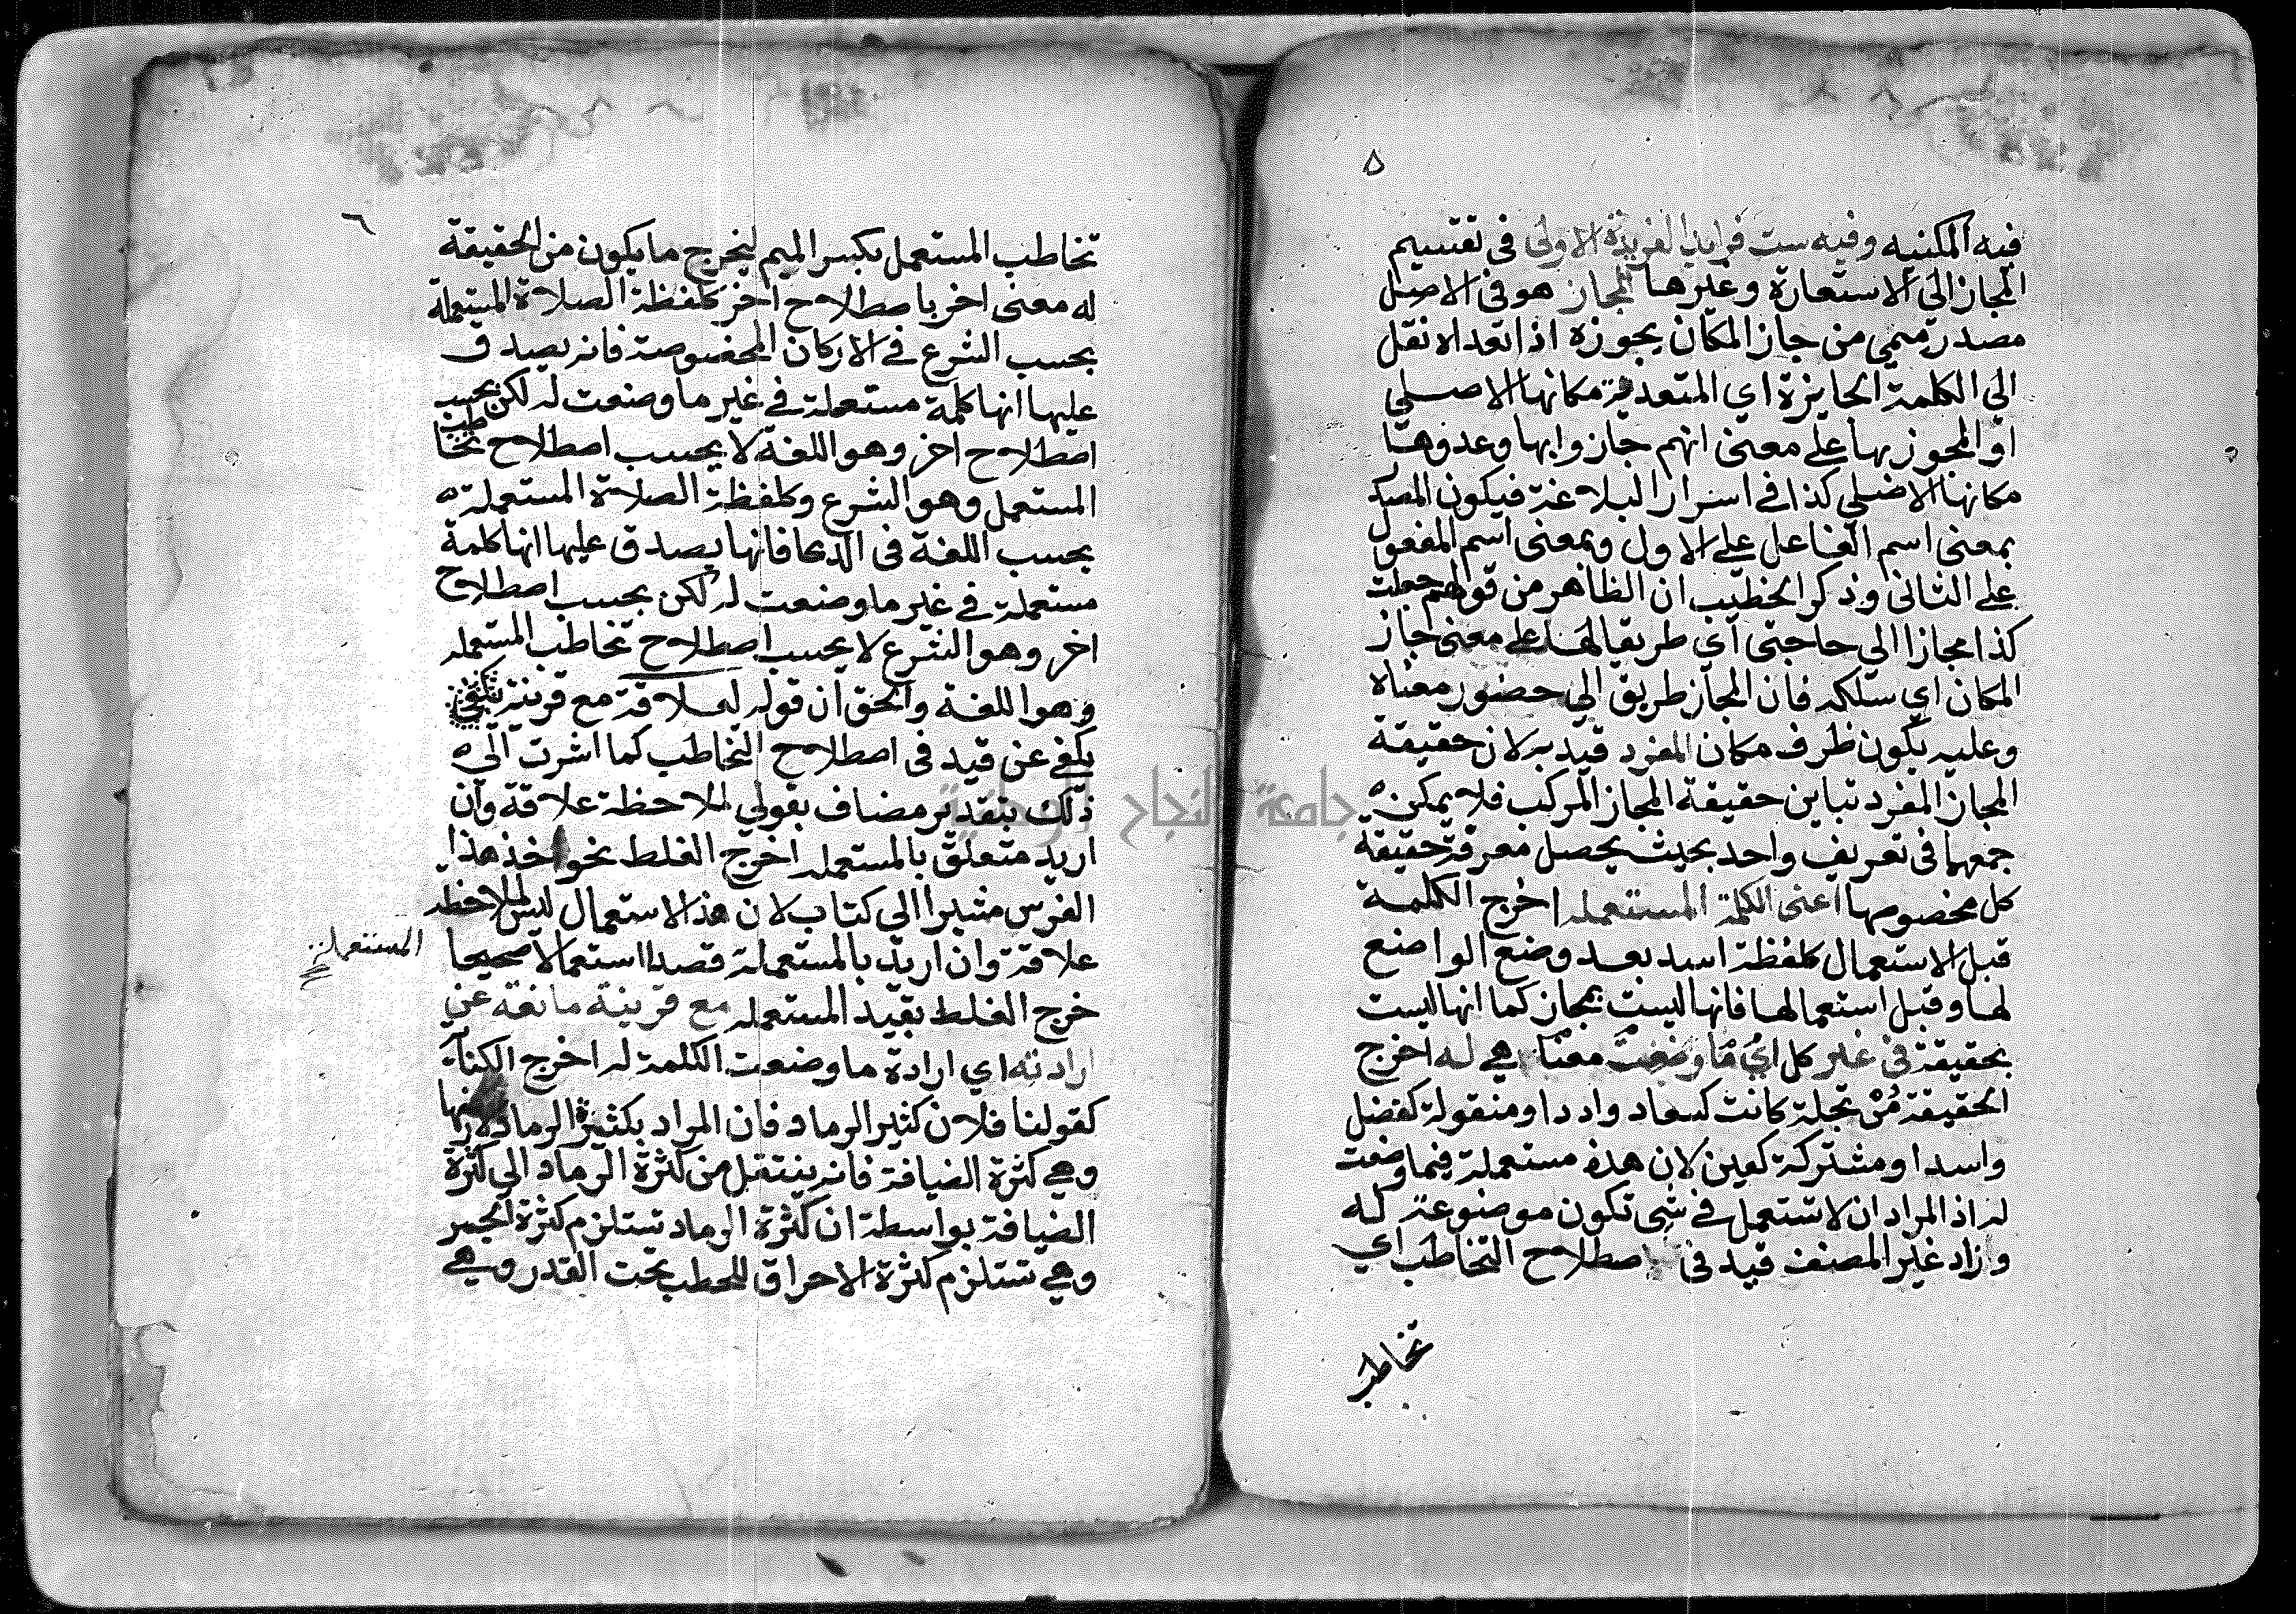 ٥
فيه المكنيه وفيه ست فرايد الفريدة الاولى في تقسيم
المجاز الى الاستعارة وغيرها المجاز هو في الاصل
مصدر ميمي من جاز المكان يجوزه اذا تعداه نقل
الى الكلمة الجايزة اي المتعدية مكانها الاصلي
او المجوز بها على معنى انهم جازوا بها وعدوها
مكانها الاصلي كذا في اسرار البلاغة فيكون المصدر
بمعنى اسم الفاعل على الاول وبمعنى اسم المفعول
على الثاني وذكر الخطيب ان الظاهر من قولهم جعلت
كذا مجازا الى حاجتي اي طريقا لها على معنى جاز
المكان اي سلكه فان المجاز طريق الى حضور معناه
وعليه يكون ظرف مكان المفرد قيد به لان حقيقة
المجاز المفرد تباين حقيقة المجاز المركب فلا يمكن
جمعهما في تعريف واحد بحيث يحصل معرفة حقيقة
كل مخصوصها اعنى الكلمة المستعمله اخرج الكلمة
قبل الاستعمال كلفظة اسد بعد وضع الواضع
لها وقبل استعمالها فانها ليست بمجاز كما انها ليست
بحقيقة في غير كل اي ما وضعت معناه هي له اخرج
الحقيقة مرتجلة كانت كسعاد وادد او منقولة كفضل
واسد او مشتركة كعين لان هذه مستعملة فيما وضعت
له اذ المراد ان لا تستعمل في شي تكون موضوعة له
وزاد غير المصنف قيد في اصطلاح التخاطب اي
تخاطب
٦
تخاطب المستعمل بكسر الميم ليخرج ما يكون من الحقيقة
له معنى اخر باصطلاح اخر كلفظة الصلاة المستعملة
بحسب الشرع في الاركان المخصوصة فانه يصدق
عليها انها كلمة مستعملة في غير ما وضعت له لكن بحسب
اصطلاح اخر وهو اللغة لا بحسب اصطلاح تخاطب
المستعمل وهو الشرع وكلفظة الصلاة المستعملة
بحسب اللغة في الدعا فانها يصدق عليها انها كلمة
مستعملة في غير ما وضعت له لكن بحسب اصطلاح
اخر وهو الشرع لا بحسب اصطلاح تخاطب المستعمله
وهو اللغة والحق ان قوله لعلاقة مع قرينة
يكفي عن قيد في اصطلاح التخاطب كما اشرت الى
ذلك بتقدير مضاف بقولي لملاحظة علاقة وان
اريد متعلق بالمستعمله اخرج الغلط نحو خذ هذا
الفرس مشيرا الى كتاب لان هذا الاستعمال ليس لملاحظة
علاقة وان اريد بالمستعملة قصدا استعمالا صحيحا
المستعملة
خرج الغلط بقيد المستعمله مع قرينة مانعة عن
ارادته اي ارادة ما وضعت الكلمة له اخرج الكناية
كقولنا فلان كثير الرماد فان المراد بكثير الرماد لازمها
وهي كثرة الضيافة فانه ينتقل من كثرة الرماد الى كثرة
الضيافة بواسطة ان كثرة الرماد تستلزم كثرة الجمر
وهي تستلزم كثرة الاحراق للحطب تحت القدر وهي
جامعة النجاح الوطنية